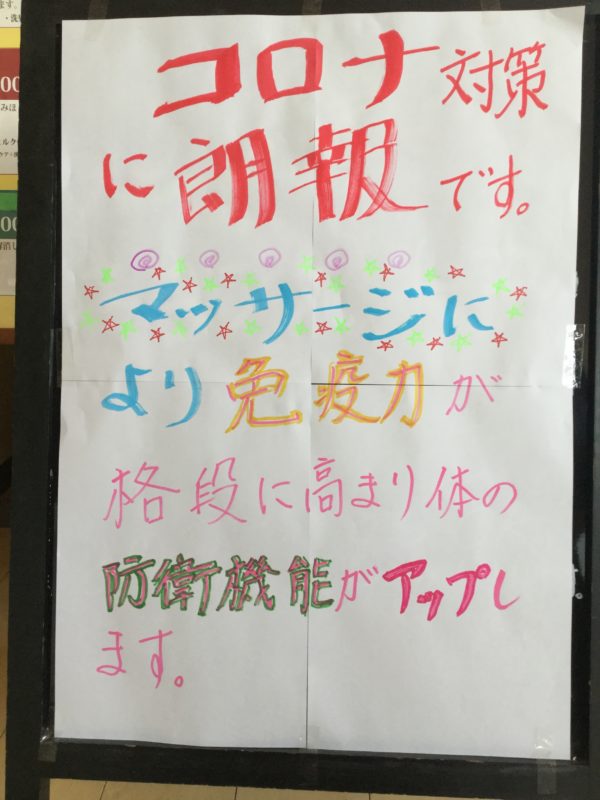 コロナ対策
に朗報です。
マッサージに
より免疫力が
格段に高まり体の
防衛機能がアップし
ます。